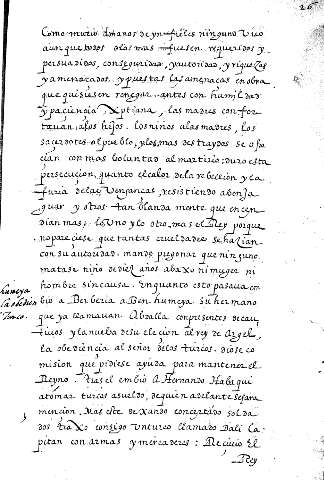 Como murió a manos de ynfieles ninguno vivo
aunque todos o los mas fuesen requeridos y
persuadidos, con seguridad, y autoridad, y riquezas
y amenazados, y puestas las amenazas en obra
que quisiesen renegar. antes con humildad
y paciencia Xptiana, las madres confor
tauan a los hijos. los niños a las madres, los
sacerdotes al pueblo, y los mas destraydos se ofre
cian con mas voluntad al martirio: duro esta
persecucion, quanto el calor de la rebelion y la
furia de las venganças, resistiendo abenja
guar y otros tan blandamente que encen
dian mas, lo uno y lo otro, mas el Rey porque
no pareciese que tantas crueldades se hazian
con su autoridad. mando pregonar que ninguno
matase niño de diez años abaxo ni muger ni
hombre sin causa. En quanto esto pasaua en
bio a Berberia a Ben humeya su hermano
que ya llamauan Abdalla con presentes de cau
tiuos y la nueba de su elecion al rey de Argel,
la obediencia al señor de los turcos. diose co
mision que pidiese ayuda para mantener el
Reyno. tras el embio a Hernando Habaqui
a tomar turcos a sueldo, de quien adelante se hara
mencion. Mas este dexando concertado solda
dos traxo consigo un turco llamado Dali ca
pitan con armas y mercaderes: Recivio El
Rey
humeya
la obedien
Turco